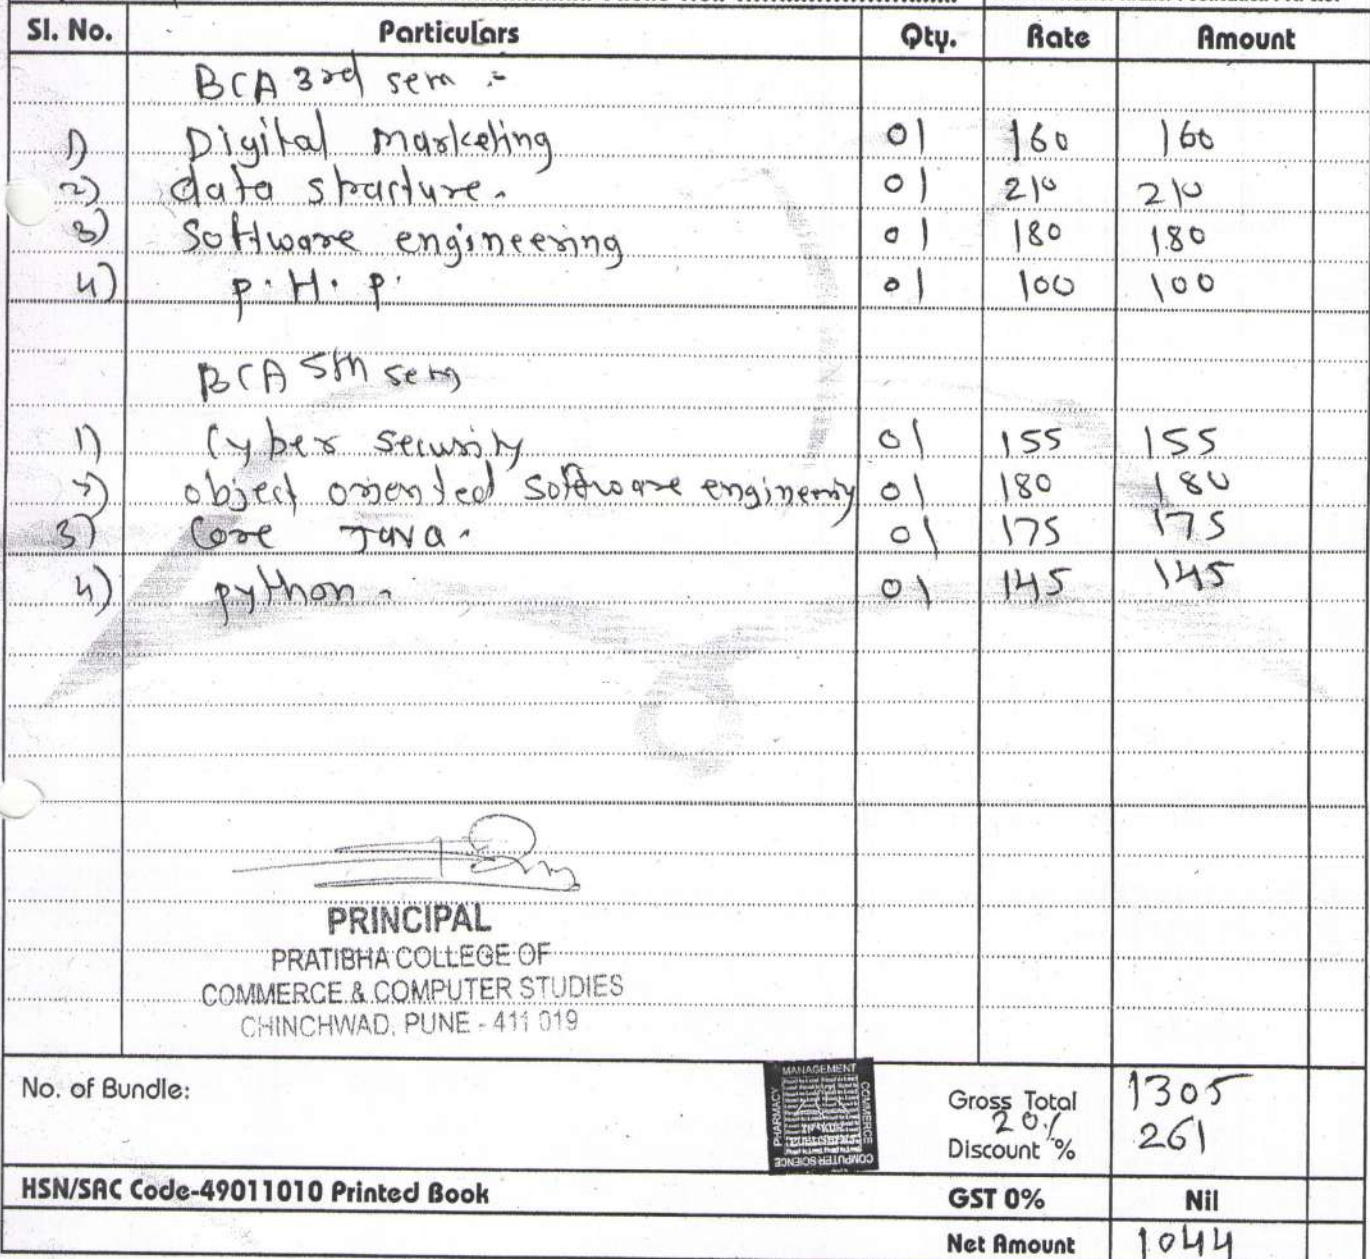 Sl. No. Particulars Qty. Rate Amount
BCA 3rd sem :-
1) Digital marketing 01 160 160
2) data sturture. 01 210 210
3) Software engineering 01 180 180
4) P.H.P. 01 100 100
BCA 5th sem
1) Cyber Security 01 155 155
2) object oriented Software enginerig 01 180 180
3) Core Java. 01 175 175
4) python. 01 145 145
PRINCIPAL
PRATIBHA COLLEGE OF
COMMERCE & COMPUTER STUDIES
CHINCHWAD, PUNE - 411 019
No. of Bundle:
MANAGEMENT
COMMERCE
COMPUTER SCIENCE
PHARMACY
Gross Total 1305
20%
Discount % 261
HSN/SAC Code-49011010 Printed Book GST 0% Nil
Net Amount 1044